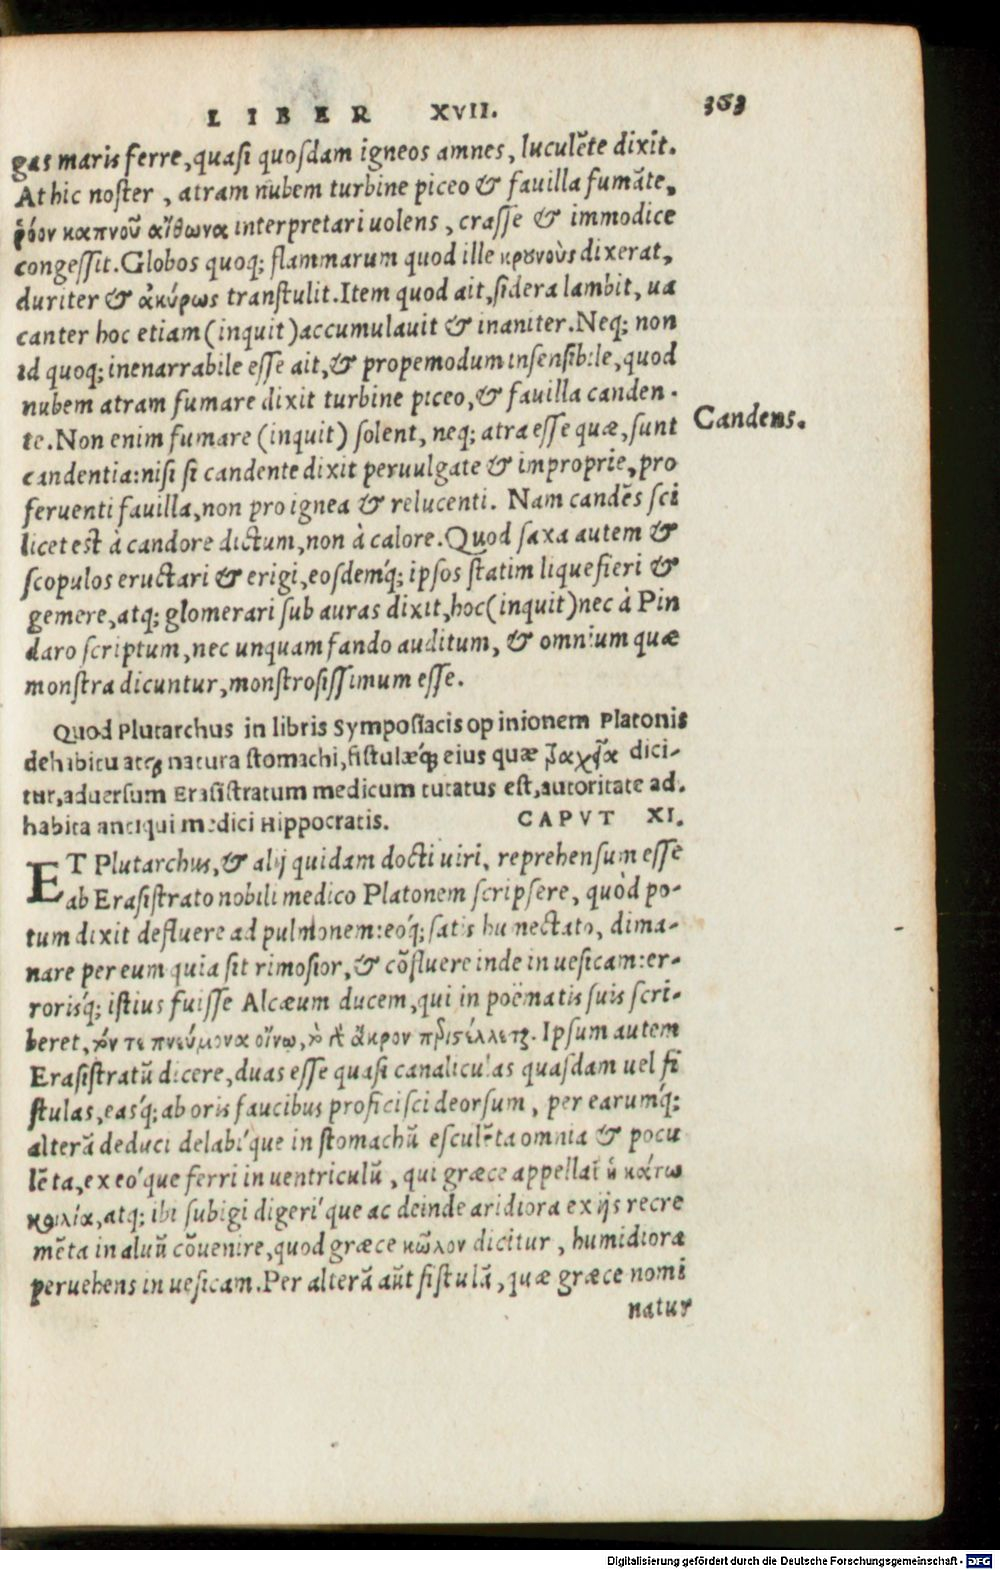 LIBER XVII. 363
gas maris ferre, quasi quosdam igneos amnes, luculēte dixit.
At hic noster, atram nubem turbine piceo & fauilla fumāte,
ῥόον καπνοῦ αἴθωνα interpretari uolens, crasse & immodice
congessit. Globos quoq; flammarum quod ille κρουνοὺς dixerat,
duriter & ἀκύρως transtulit. Item quod ait, sidera lambit, ua
canter hoc etiam (inquit) accumulauit & inaniter. Neq; non
id quoq; inenarrabile esse ait, & propemodum insensibile, quod
nubem atram fumare dixit turbine piceo, & fauilla canden-
te. Non enim fumare (inquit) solent, neq; atra esse quæ, sunt
Candens.
candentia: nisi si candente dixit peruulgate & improprie, pro
feruenti fauilla, non pro ignea & relucenti. Nam candēs sci
licet est à candore dictum, non à calore. Quod saxa autem &
scopulos eructari & erigi, eosdemq́; ipsos statim liquefieri &
gemere, atq; glomerari sub auras dixit, hoc (inquit) nec à Pin
daro scriptum, nec unquam fando auditum, & omnium quæ
monstra dicuntur, monstrosissimum esse.
Quod Plutarchus in libris Symposiacis opinionem Platonis
de habitu atq; natura stomachi, fistulæq́; eius quæ τραχεῖα dici-
tur, aduersum Erasistratum medicum tutatus est, autoritate ad-
habita antiqui medici Hippocratis. CAPVT XI.
ET Plutarchus, & alij quidam docti uiri, reprehensum esse
ab Erasistrato nobili medico Platonem scripsere, quòd po-
tum dixit defluere ad pulmonem: eoq́; satis humectato, dima-
nare per eum quia sit rimosior, & cōfluere inde in uesicam: er-
rorisq́; istius fuisse Alcæum ducem, qui in poëmatis suis scri-
beret, τόν τε πνεύμονα οἴνῳ, τὸ δ' ἄκρον περιστέλλεται. Ipsum autem
Erasistratū dicere, duas esse quasi canaliculas quasdam uel fi
stulas, easq́; ab oris faucibus proficisci deorsum, per earumq́;
alterā deduci delabíque in stomachū esculēta omnia & pocu
lēta, ex eóque ferri in uentriculū, qui græce appellat̄ ἡ κάτω
κοιλία, atq; ibi subigi digeríque ac deinde aridiora ex ijs recre
mēta in aluū cōuenire, quod græce κῶλον dicitur, humidiora
peruehens in uesicam. Per alterā aūt fistulā, quæ græce nomi
natur
Digitalisierung gefördert durch die Deutsche Forschungsgemeinschaft - DFG